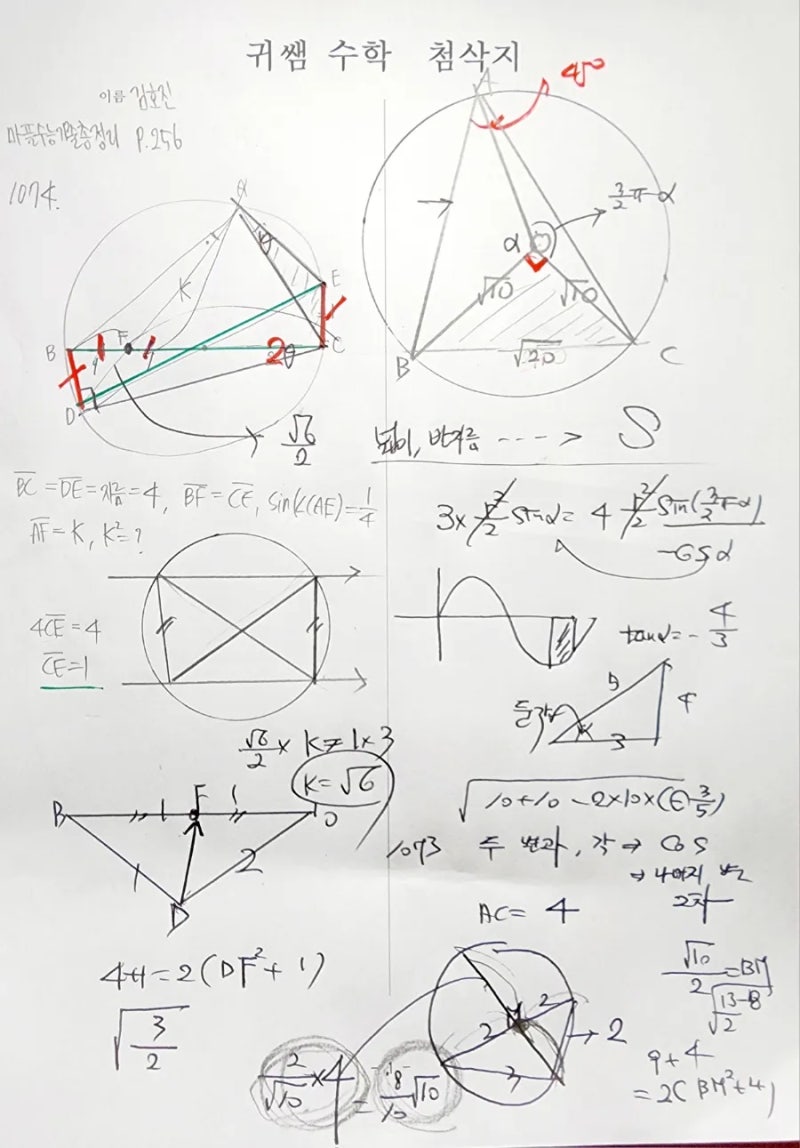 귀쌤 수학 첨삭지
이름 김호진
마플수능기출총정리 P.256
1074.
A
K
θ
E
B
F
1
1
2
θ
C
D
√6/2
BC = DE = 지름 = 4, BF = CE, sin(∠CAE) = 1/4
AF = K, K² = ?
4CE = 4
CE = 1
√6/2 × K = 1×3
K = √6
B
F
1
1
O
1
2
D
4+1 = 2(DF² + 1)
√3/2
A
45°
α
3/2π-α
√10
√10
√20
B
C
넓이, 반지름 ----> S
3× r²/2 sinα = 4 r²/2 sin(3/2π-α)
-cosα
tanα = -4/3
둔각
5
4
3
√10+10-2×10×(-3/5)
1073
두 변과, 각 → cos
→ 나머지 변
2차
AC = 4
√10/2 = BM
√13-8/2
M
2
2
2
3
9+4
= 2(BM²+4)
2/√10 ×4 = 8/10 √10